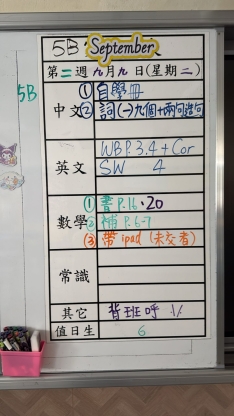 5B September
第二週九月九日(星期二)
5B
中文 ①自學冊
②詞(一)九個+兩句造句
英文 WB P.3.4 + Cor
SW 4
數學 ①書P.16、20
②補P.6-7
③帶ipad(未交者)
常識
其它 背班呼
值日生 6